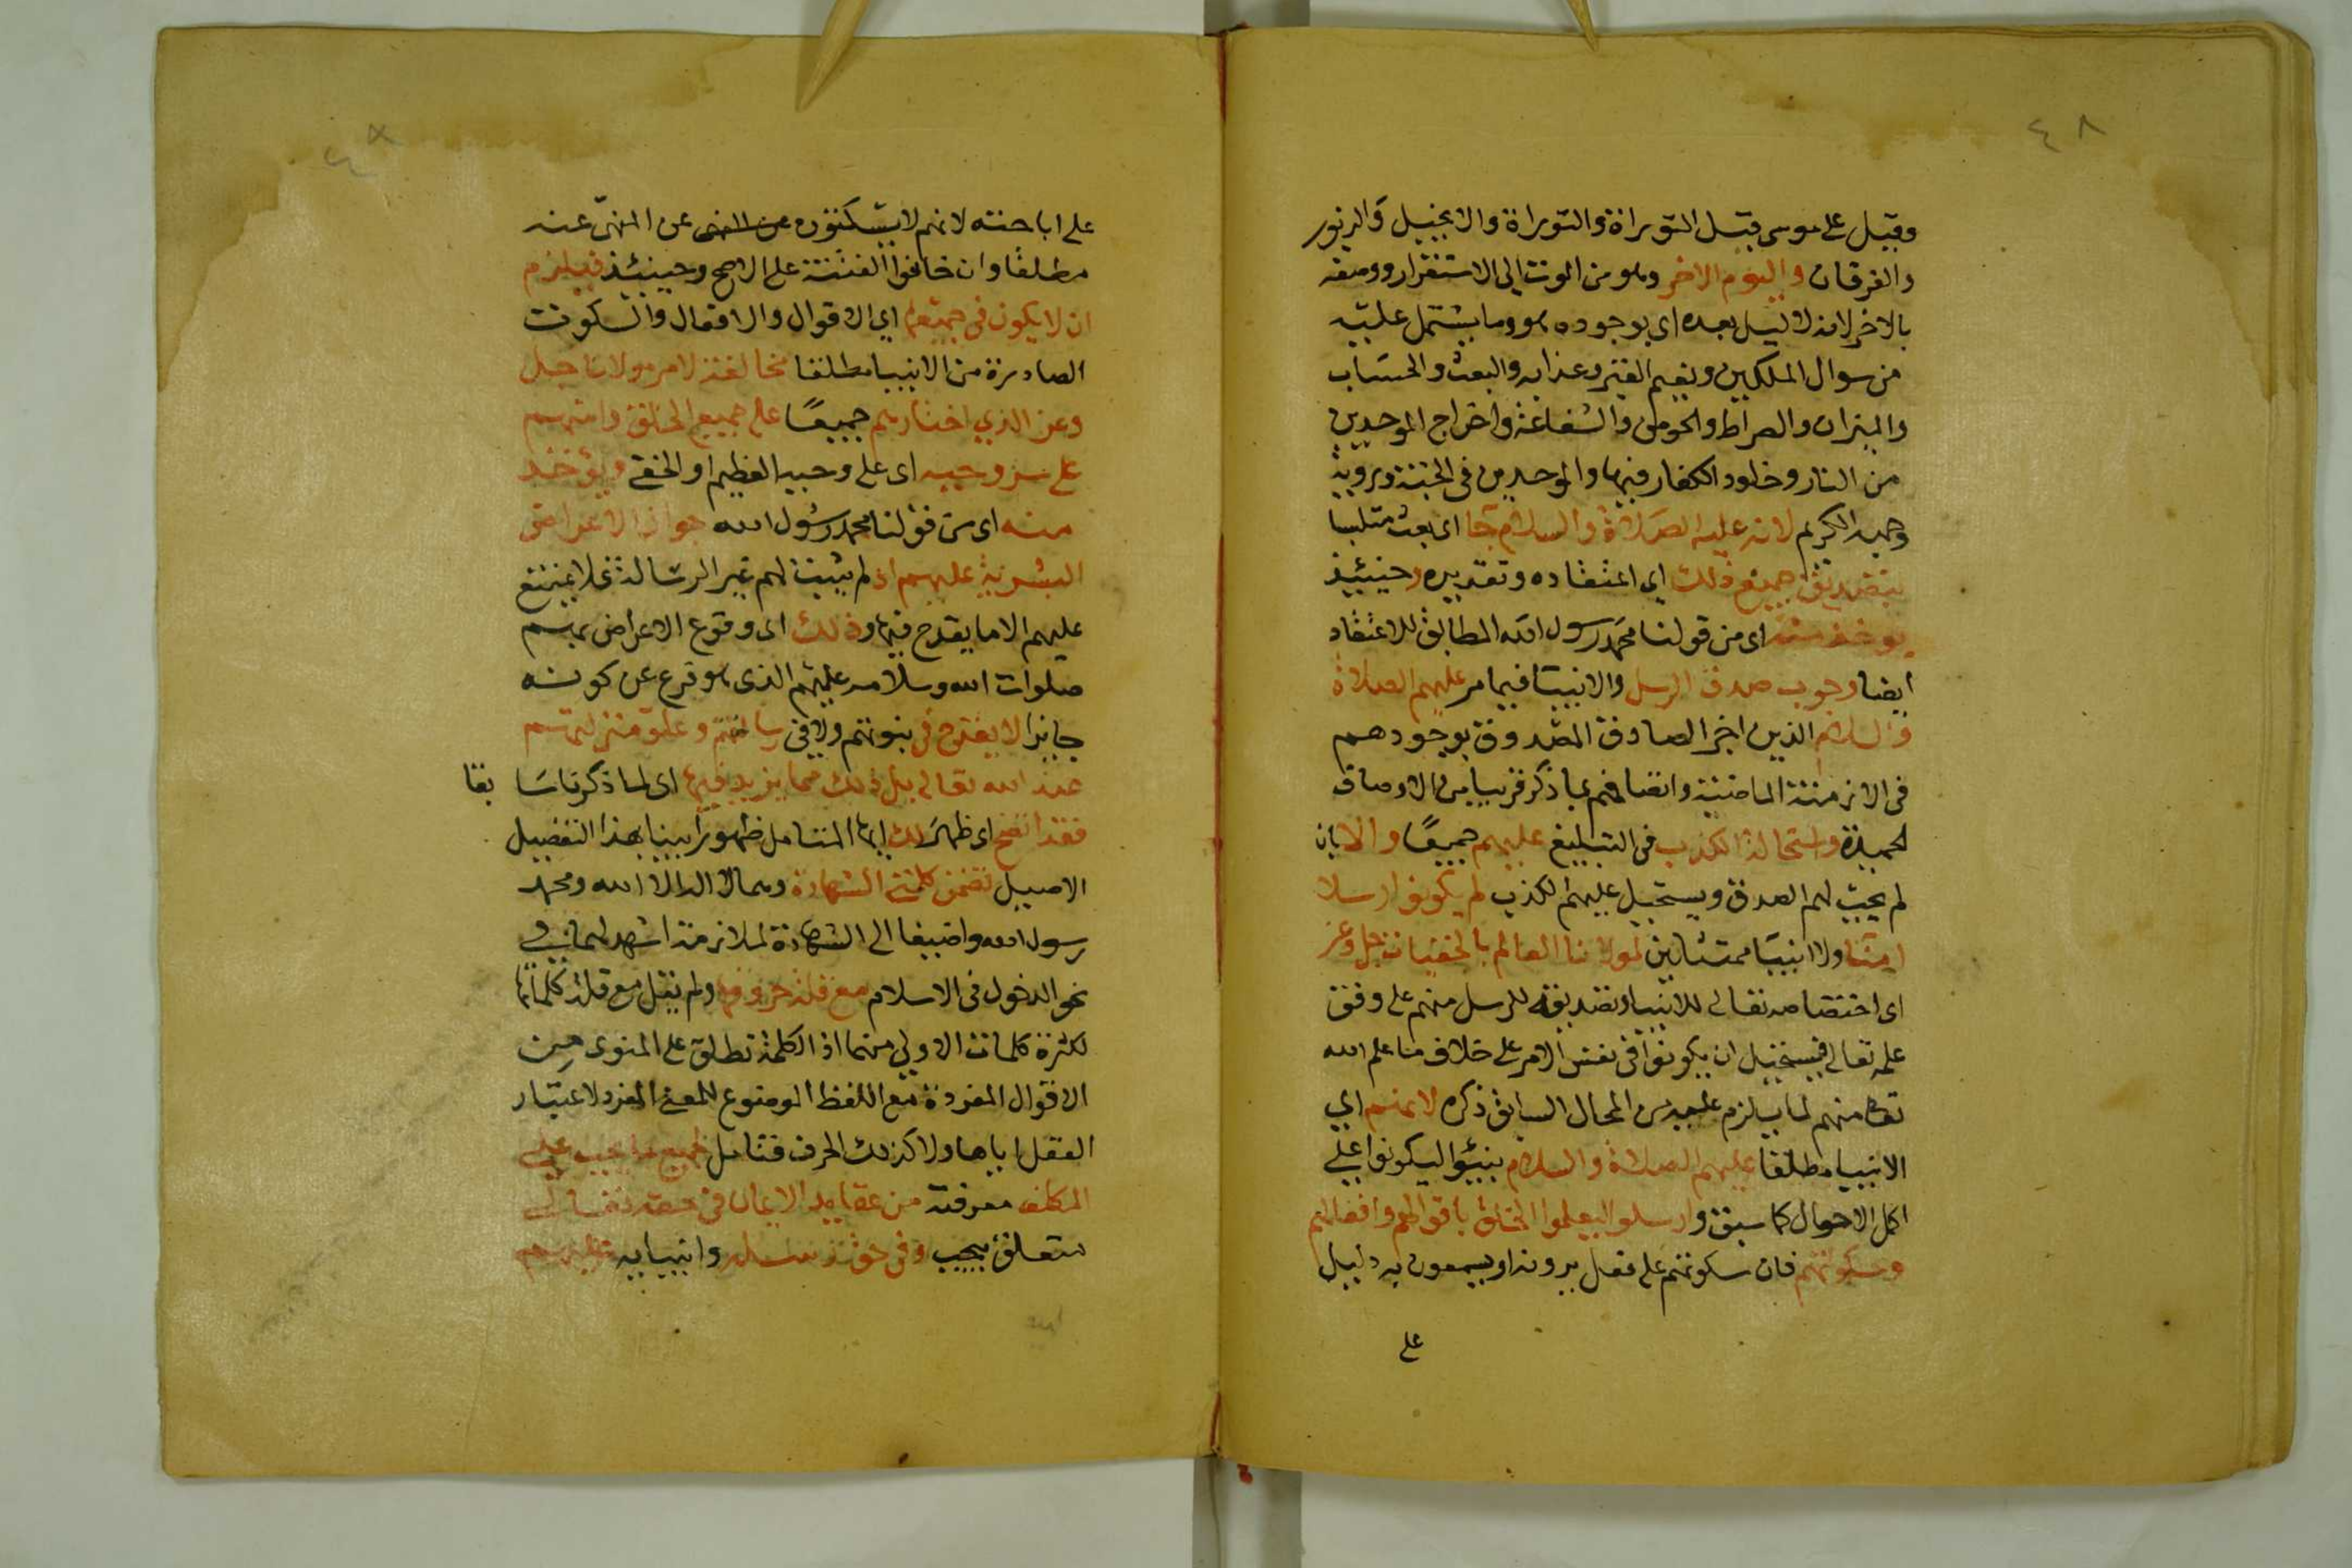 ٤٨
وقيل على موسى قبل التوراة والتوراة والانجيل والزبور
والفرقان واليوم الاخر وهو من الموت الى الاستقرار ووصفه
بالاخر لانه لا ليل بعده اى بوجوده هو وما يشتمل عليه
من سوال الملكين ونعيم القبر وعذابه والبعث والحساب
والميزان والصراط والحوض والشفاعة واخراج الموحدين
من النار وخلود الكفار فيها والموحدين فى الجنة وروية
وجهه الكريم لانه عليه الصلاة والسلام جا اى بعث متلبسا
بتصديق جميع ذلك اى اعتقاده وتقديره وحينئذ
يوخذ منه اى من قولنا محمد رسول الله المطابق للاعتقاد
ايضا وجوب صدق الرسل والانبيا فيما مر عليهم الصلاة
والسلام الذين اخبر الصادق المصدوق بوجودهم
فى الازمنة الماضية واتصافهم بما ذكر قريبا من الاوصاف
الحميدة واستحالة الكذب فى التبليغ عليهم جميعا والا بان
لم يجب لهم الصدق ويستحيل عليهم الكذب لم يكونوا رسلا
امنا ولا انبيا ممتثلين لمولانا العالم بالخفيات جل وعز
اى اختصاصه تعالى للانبيا وتصديقه للرسل منهم على وفق
علمه تعالى فيستحيل ان يكونوا فى نفس الامر على خلاف ما علم الله
تعا منهم لما يلزم عليه من المحال السابق ذكره لانهم اى
الانبيا مطلقا عليهم الصلاة والسلام بنبئوا ليكونوا على
اكمل الاحوال كما سبق وارسلوا ليعلموا الخلق باقوالهم وافعالهم
وسكوتهم فان سكوتهم على فعل يرونه او يسمعون به دليل
على
٤٨
على اباحته لانهم لا يسكتون عن النهى عن المنهى عنه
مطلقا وان خافوا الفتنة على الاصح وحينئذ فيلزم
ان لا يكون فى جميعها اى الاقوال والافعال والسكوت
الصادرة من الانبيا مطلقا مخالفة لامر مولانا جل
وعز الذي اختارهم جميعا على جميع الخلق وامنهم
على سر وحيه اى على وحيه العظيم او الخفى ويؤخذ
منه اى من قولنا محمد رسول الله جواز الاعراض
البشرية عليهم اذ لم يثبت لهم غير الرسالة فلا يمتنع
عليهم الا ما يقدح فيها وذلك اى وقوع الاعراض بهم
صلوات الله وسلامه عليهم الذى هو فرع عن كونه
جايزا لا يقدح فى نبوتهم ولا فى رسالتهم وعلو منزلتهم
عند الله تعالى بل ذلك مما يزيد فيها اى لما ذكرناسا بقا
فقد اتضح اى ظهر لك ايها المتامل ظهورا بينا بهذا التفصيل
الاصيل تضمن كلمتى الشهادة وهما لا اله الا الله ومحمد
رسول الله واضيفا الى الشهادة لملازمة اشهد لهما فى
نحو الدخول فى الاسلام مع قلة حروفها ولم يقل مع قلة كلماتها
لكثرة كلمات الاولى منهما اذ الكلمة تطلق على المنوى من
الاقوال المفردة مع اللفظ الموضوع للمعنى المفرد لاعتبار
العقل اياها ولا كذلك الحرف فتامل لجميع ما يجب على
المكلف معرفته من عقايد الايمان فى حقه تعالى
متعلق بيجب وفى حق رسله وانبيايه عليهم